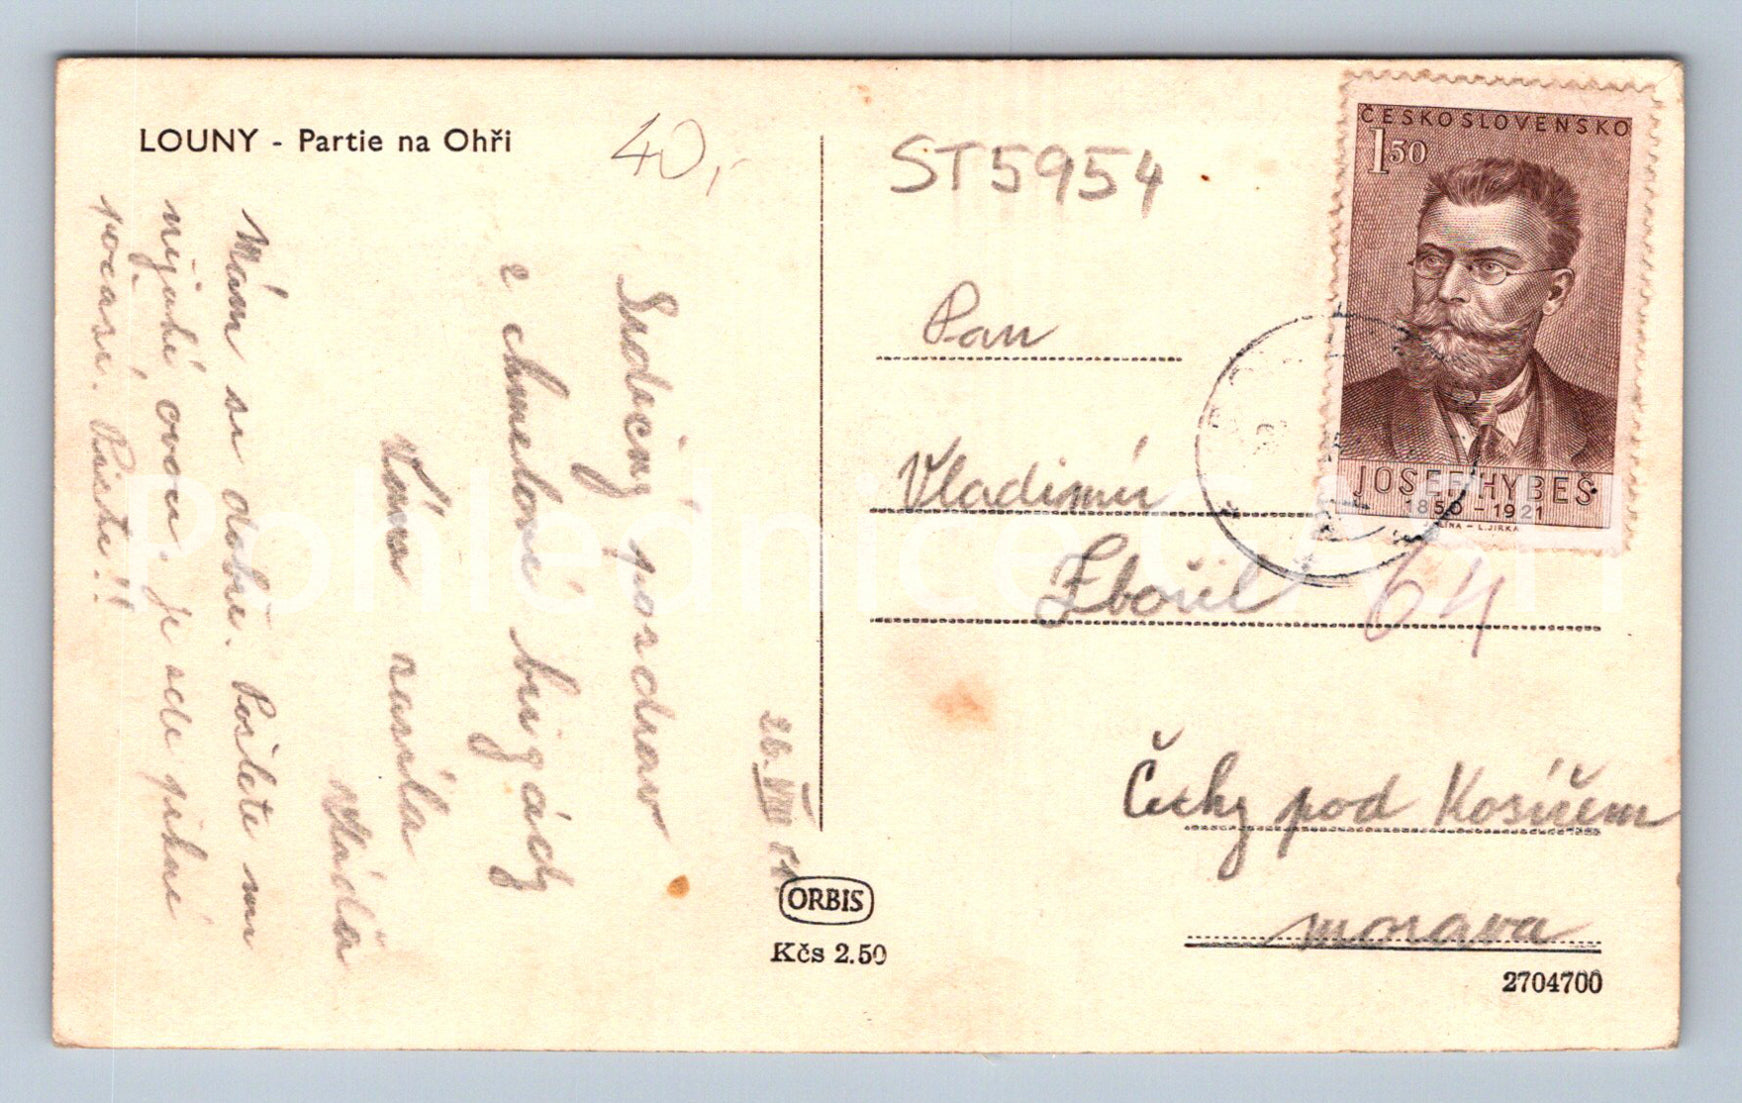 LOUNY - Partie na Ohři
40,-
Srdečný pozdrav
z chmelové brigády
Vám zasílá
Vláďa
Mám se dobře. Pošlete mi
nějaké ovoce. Je zde pěkné
počasí. Pište!!
26. VIII 51.
ORBIS
Kčs 2.50
ST5954
ČESKOSLOVENSKO
1.50
JOSEF HYBEŠ
1850 - 1921
L. JIRKA
Pan
Vladimír
Zbořil
64
Čechy pod Kosířem
Morava
2704700
Pohlednice